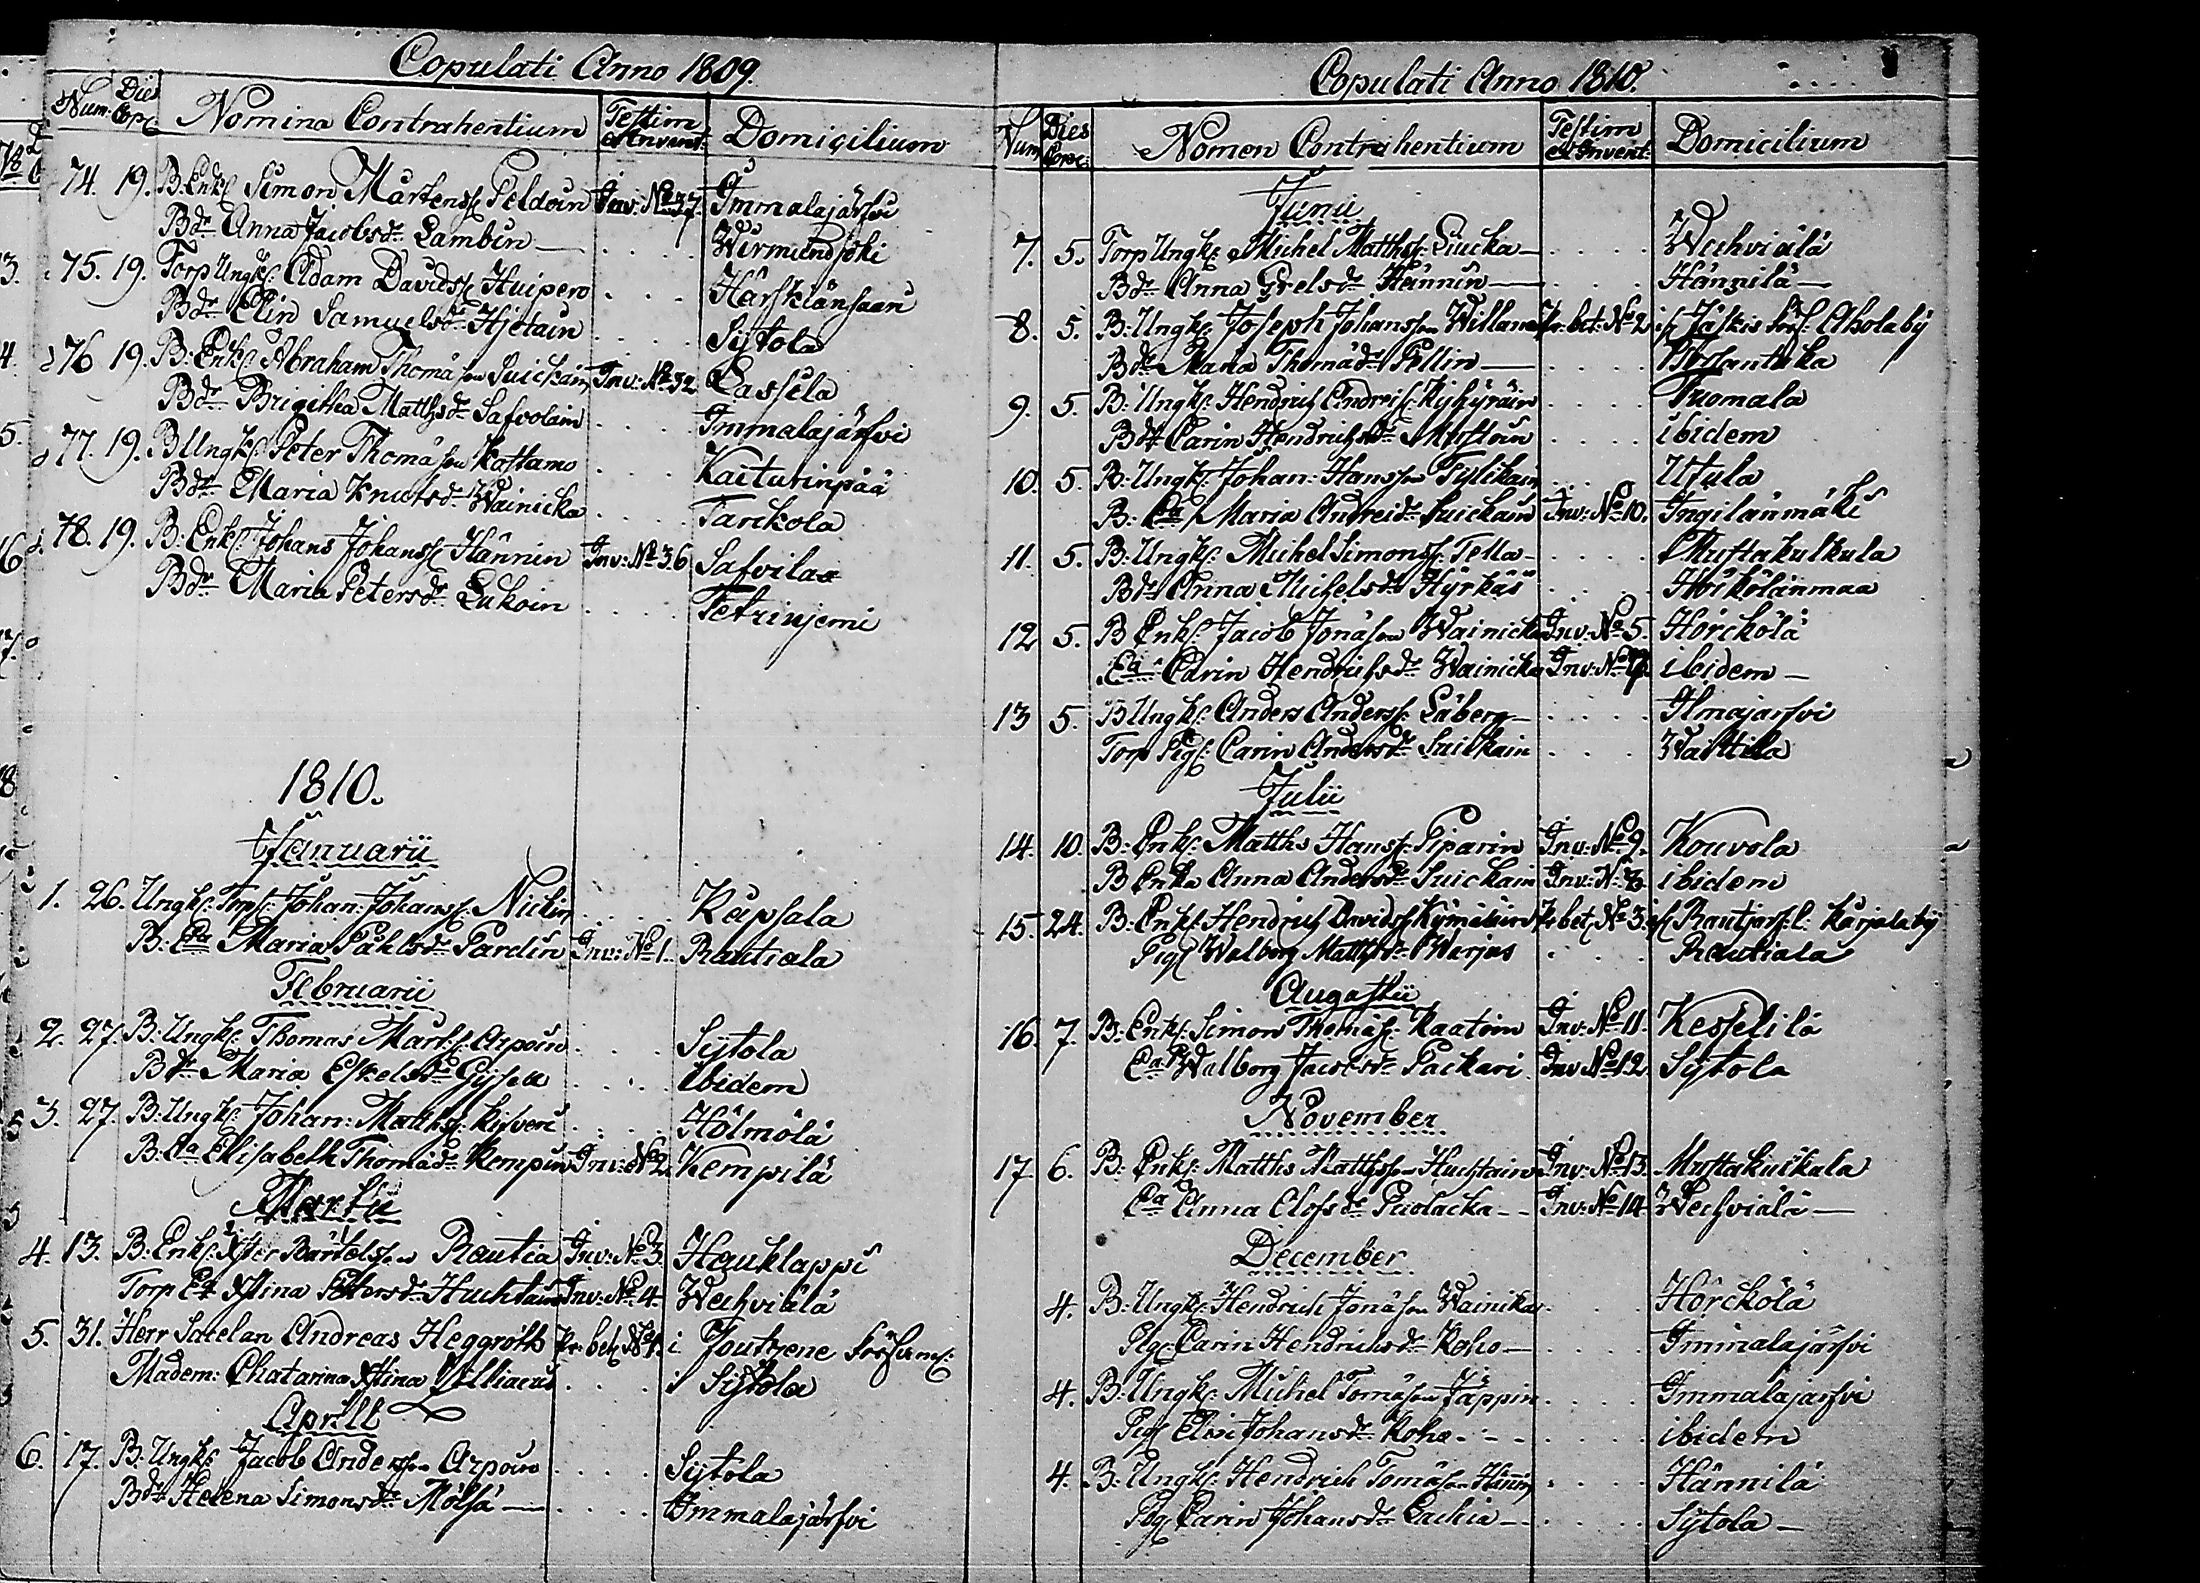 Copulati Anno 1809.
Num. Dies Cop: Nomina Contrahentium Testim et Invent: Domicilium
74. 19. B. Enkl: Simon Mårtenss: Peldoin Inv: No 37. Immalajärfvi
Bdr Anna Jacobsdr Lambin Wirmundjoki
75. 19. Torp Ungk: Adam Davidss: Huipero Härskiänsaari
Bdr Elin Samuelsdr Hjetain Sijtola
76 19. B: Enkl: Abraham Thomässon Suickain Inv: No 32 Lassila
Bdr Brigitha Matthsdr Safvolain Immalajärfvi
77. 19. B Ungk: Peter Thomässon Kostamo Kaiturinpää
Bdr Maria Knutsdr Wainicka Tarckola
78. 19. B: Enkl: Johans Johanss: Hännin Inv: No 36 Safvilaa
Bdr Maria Petersdr Lukoin Tetrinjemi
1810.
Januarii
1. 26. Ungk: Torp: Johan: Johanss: Kapsala
B: Ea Maria Påhlsdr Pardin Inv: No 1. Rautiala
Februarii
2. 27. B: Ungk: Thomas Mårtss: Arpoin Sijtola
Bdr Maria Eskelsdr ibidem
3. 27. B: Ungk: Johan: Matthss: Hölmölä
B: Ea Elisabeth Thomädr Kempin Inv: No 2. Kempilä
Martii
4. 13. B: Enkl: Xster Bärtelsson Rautia Inv: No 3. Hauklappi
Torp Ea Xstina Pettersdr Huchtain Inv: No 4. Wechviälä
5. 31. Herr Andreas Heggroth Pr: bet: No 1. i Joutzene
Madem: Chatarina Xstina i Sijtola
Aprill
6. 17. B: Ungk: Jacob Andersson Arpoin Sijtola
Bdr Helena Simonsdr Mölsä Immalajärfvi
Copulati Anno 1810.
Num Dies Cop: Nomen Contrahentium Testim et Invent: Domicilium
Junii
7. 5. Torp Ungk: Michel Matthss: Liucka Wechviälä
Bdr Anna Grelsdr Hännin Hännilä
8. 5. B: Ungk: Joseph Johansson Pr: bet: No 2 Jäskis Aholaby
Bdr Maria Thomädr Pellin
9. 5. B: Ungk: Hendrich Andreiss: Kijhyräin Tuomala
Bdr Carin Hendrichsdr ibidem
10. 5. B: Ungk: Johan: Hansson Tylikain Utula
B: Ea Maria Andreidr Suickain Inv: No 10. Ingilänmäki
11. 5. B: Ungk: Michel Simonss: Tella
Bdr Anna Michelsdr Hyrkäs Hörkölänmaa
12 5. B Enkl: Jacob Jonässon Wainicka Inv: No 5. Hörckölä
Ea Carin Hendrichsdr Wainicka Inv: No ibidem
13 5. B Ungk: Anders Anderss: Låberg Ilmajarfvi
Torp Pig: Carin Andersdr Suickain Wattila
Julii
14. 10. B: Enkl: Matths Hanss: Piparin Inv: No 9. Kouvola
B Enka Anna Andersdr Suickain Inv: No ibidem
15. 24. B: Enkl: Hendrich Davidss: Pr bet No 3 Rautjarf: C: Kärjalaby
Pig: Walborg Matthsdr Warjus Rautiala
Augustii
16. 7. B: Enkl: Simon Thomäss: Kaatoin Inv: No 11. Kesselilä
Ea Walborg Jacobsdr Packari Inv No 12 Sijtola
November
17 6. B: Enkl: Matths Matthsson Huchtain Inv: No 13. Mustakuickala
Ea Anna Olofsdr Puolacka Inv: No 14 Wechviälä
December
4. B: Ungk: Hendrich Jonässon Wainika Hörckölä
Pig: Carin Hendrichsdr Koho Immalajärfvi
4. B: Ungk: Michel Tomässon Jäppin Immalajarfvi
Pig: Elin Johansdr Koho ibidem
4. B: Ungk: Hendrich Tomässon Hännin Hännilä
Pig: Carin Johansdr Lachia Sijtola